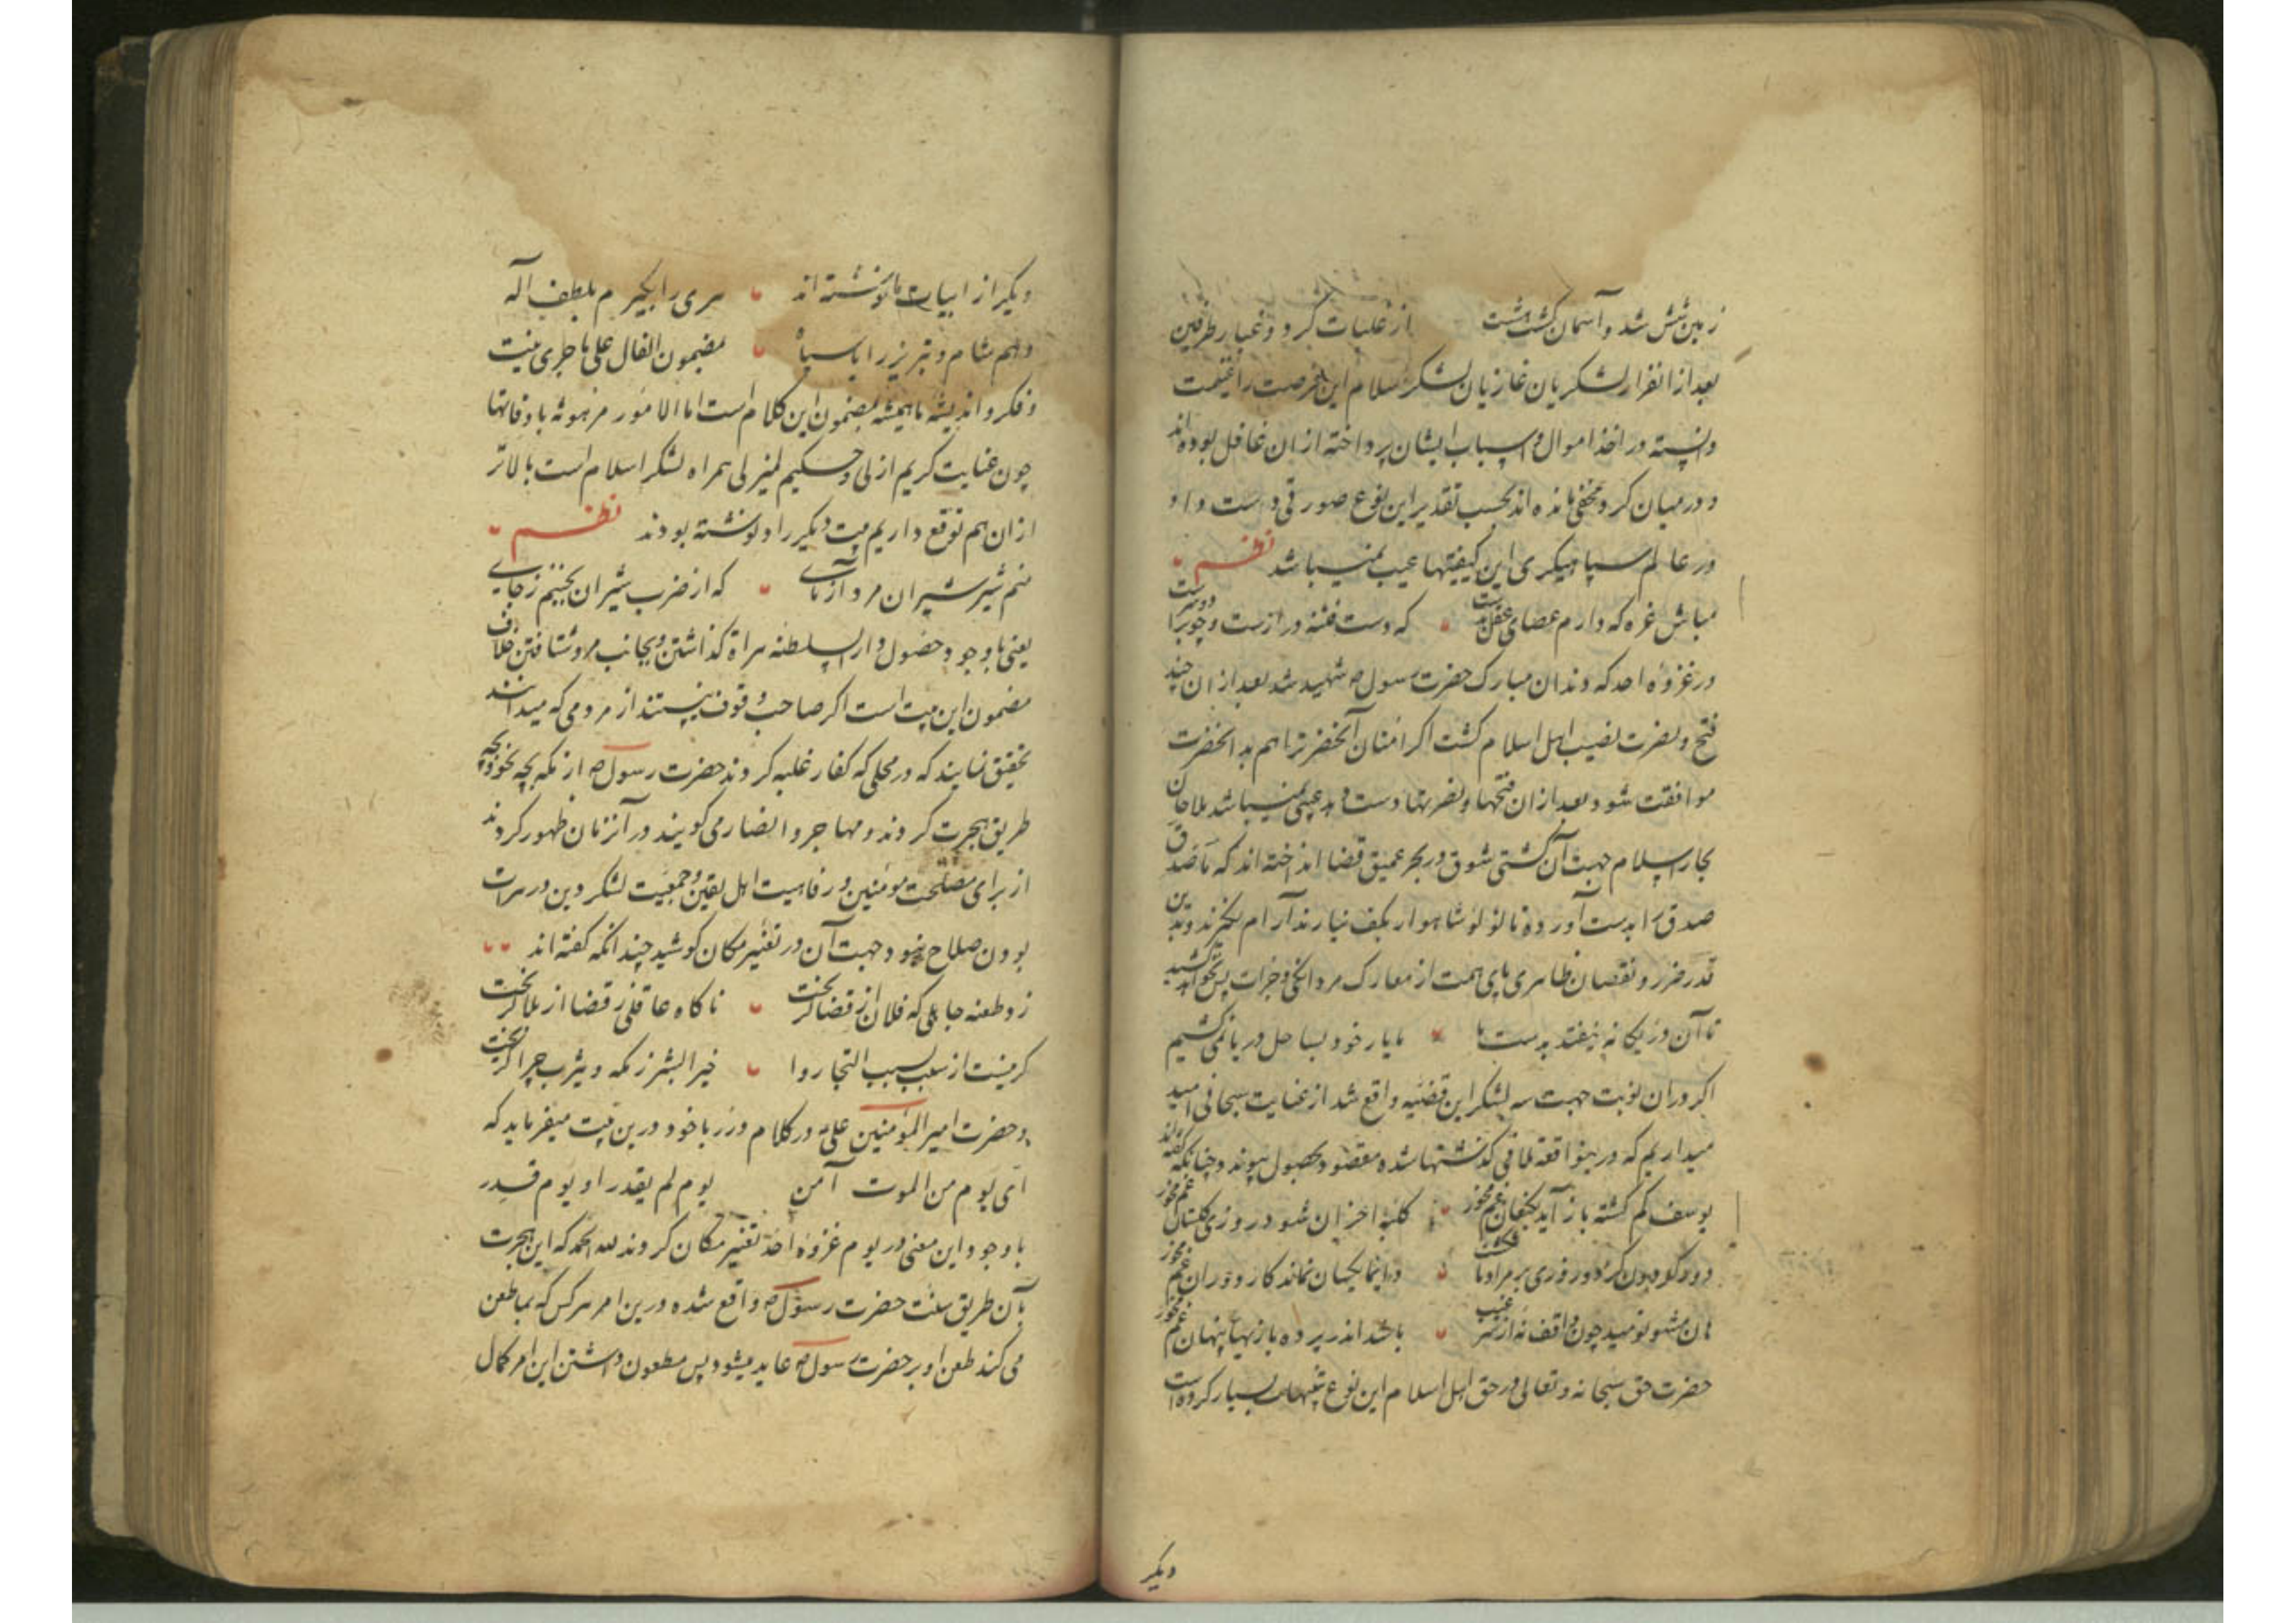 زمین شش شد و آسمان گشت هشت از غلبات گرد و غبار طرفین
بعد از انفرار لشکریان غازیان لشکر اسلام این فرصت را غنیمت
دانسته در اخذ اموال و اسباب ایشان پرداخته از ان غافل بوده اند
و در میان کرد مخفی مانده اند بحسب تقدیر این نوع صورتی دست داد
در عالم سپاهیگری این کیفیتها عیب نمیباشد نظم
مباش غره که دارم عصای عقل بدست که دست فتنه درازست و چوب را دو سرست
در غزوه احد که دندان مبارک حضرت رسول ص شهید شد بعد از ان چند
فتح و نصرت نصیب اهل اسلام گشت اگر امتنان آنحضرترا هم بدانحضرت
موافقت شود و بعد از ان فتحها و نصرتها دست دهد عیبی نمیباشد ملاحان
بحار اسلام جهت آن کشتی شوق در بحر عمیق قضا انداخته اند که تا صدق
صدق را بدست آورده تا لولو شاهوار بکف نیارند آرام نگیرند و بدین
قدر ضرر و نقصان ظاهری پای همت از معارک مردانگی و جرات پس نخواهد کشید
تا آن در یگانه نیفتد بدست ما ما بار خود بساحل دریا نمی کشیم
اگر در ان نوبت جهت سه لشکر این قضیه واقع شد از عنایت سبحانی امید
میداریم که درینواقعه تلافی گذشتها شده مقصود بحصول پیوندد چنانکه گفته اند
یوسف گم گشته باز آید بکنعان غم مخور کلبه احزان شود روزی گلستان غم مخور
دور گردون گر دو روزی بر مراد ما نگشت دایما یکسان نماند کار دوران غم مخور
هان مشو نومید چون واقف نه از سر غیب باشد اندر پرده بازیهای پنهان غم مخور
حضرت حق سبحانه و تعالی در حق اهل اسلام این نوع تنبهات بسیار کرده است
دیگر
دیگر از ابیات ما نوشته اند سری را بگیرم بلطف اله
دهم شام و تبریز را با سپاه مضمون الفال علی ما جری منیت
و فکر و اندیشه ما همیشه بمضمون این کلام است اما الامور مرهونة باوقاتها
چون عنایت کریم ازلی و حکیم لم یزلی همراه لشکر اسلام است بالاتر
از ان هم توقع داریم بیت دیگر را و نوشته بودند نظم
منم شیر شیران مرد آزمای که از ضرب شیران نجنبم ز جای
یعنی با وجود حصول دار السلطنه هراة گذاشتن و بجانب مرو شتافتن خلاف
مضمون این بیت است اگر صاحب وقوف نیستند از مردمی که میدانند
تحقیق نمایند که در محلی که کفار غلبه کردند حضرت رسول ص از مکه بچه نحو و بچه
طریق هجرت کردند و مهاجر و انصار می گویند در آنزمان ظهور کردند
از برای مصلحت مومنین و رفاهیت اهل یقین و جمعیت لشکر دین در هرات
بودن صلاح نبود جهت آن در تغییر مکان کوشید چند انکه گفته اند
زد طعنه جاهلی که فلان از قضا گریخت ناگاه عاقلی ز قضا از بلا گریخت
گر نیست از سبب بسبب التجا روا خیر البشر ز مکه و یثرب چرا گریخت
و حضرت امیر المؤمنین علی ع در کلام درربار خود درین بیت میفرماید که
ای یوم من الموت آمن یوم لم یقدر او یوم قدر
با وجود این معنی در یوم غزوه احد تغییر مکان کردند لله الحمد که این هجرت
بآن طریق سنت حضرت رسول ص واقع شده درین امر هر کس که بما طعن
می کند طعن او بر حضرت رسول ص عاید میشود پس مطعون داشتن این امر کمال